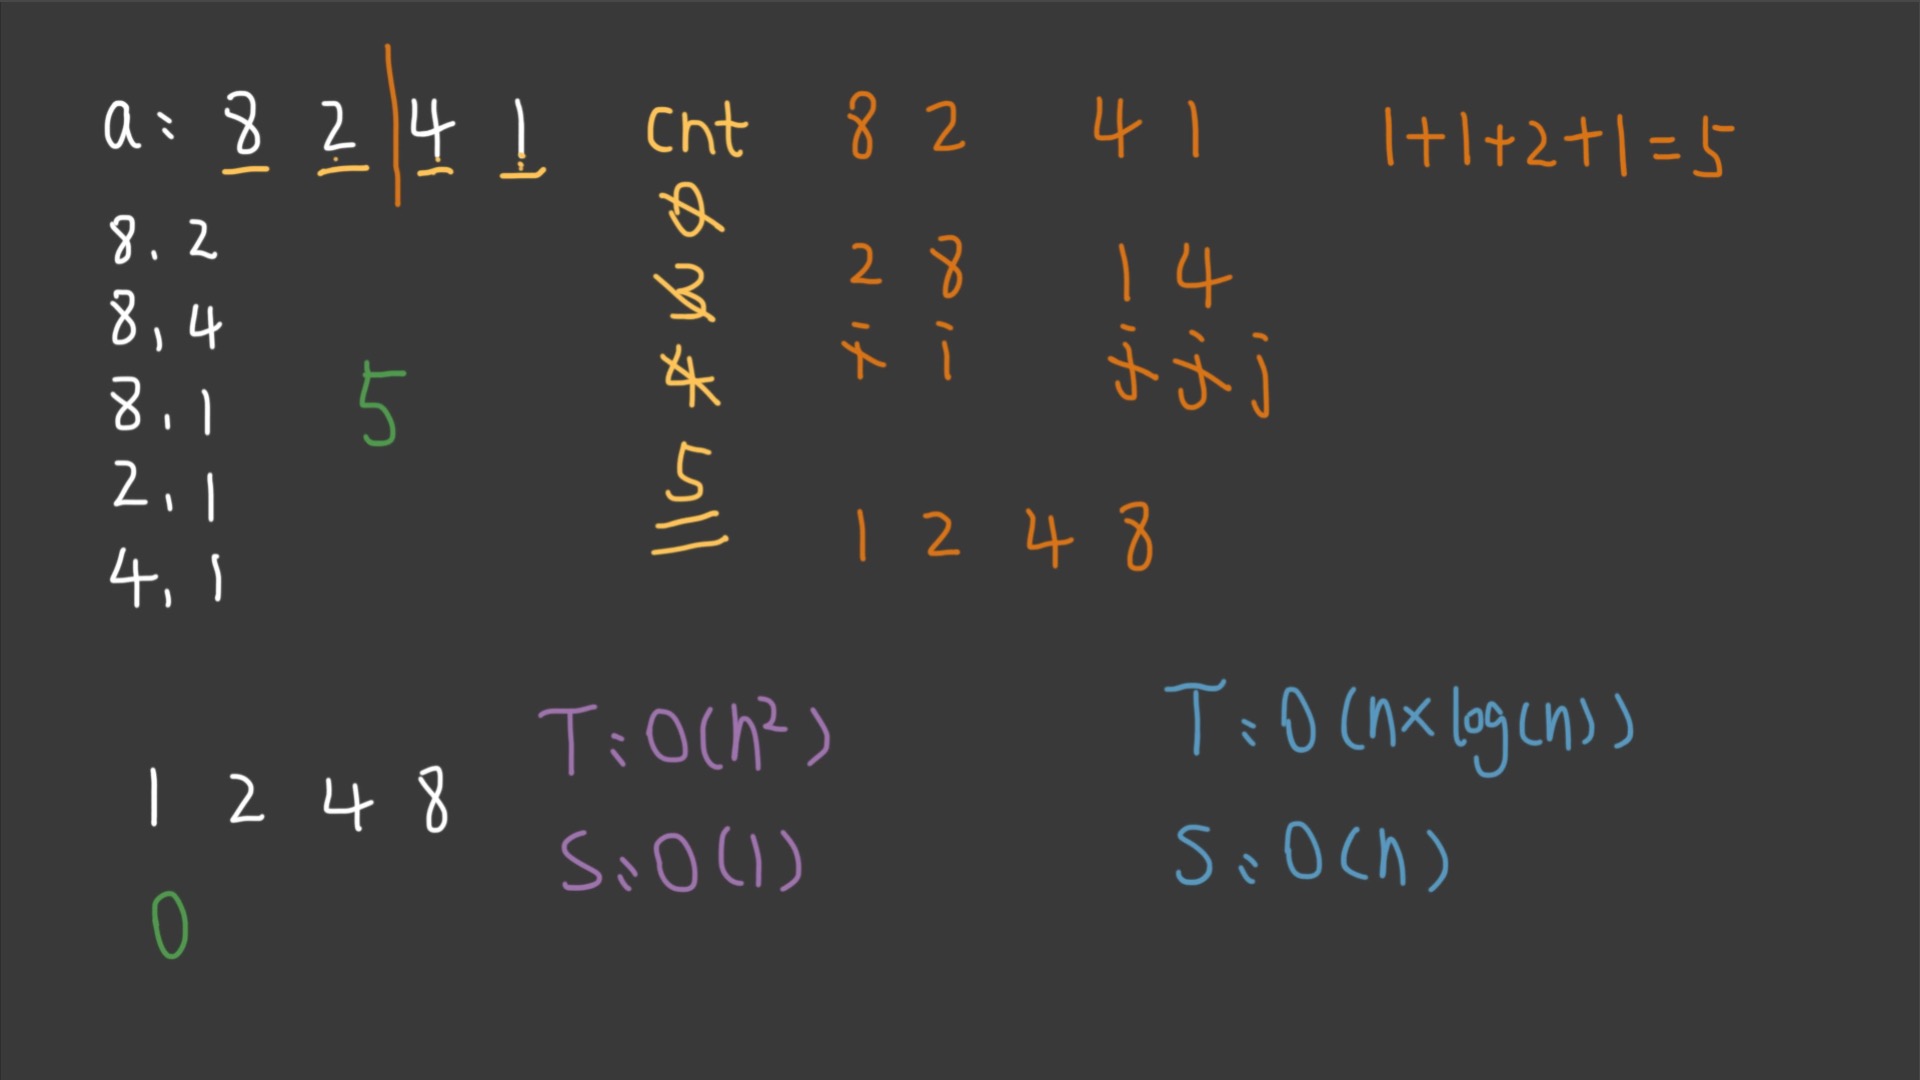 a: 8 2 4 1
8, 2
8, 4
8, 1
2, 1
4, 1
5
1 2 4 8
0
cnt
0
3
4
5
8 2 4 1
2 8 1 4
i i j j j
1 2 4 8
1+1+2+1=5
T: O(n²)
S: O(1)
T: O(n×log(n))
S: O(n)